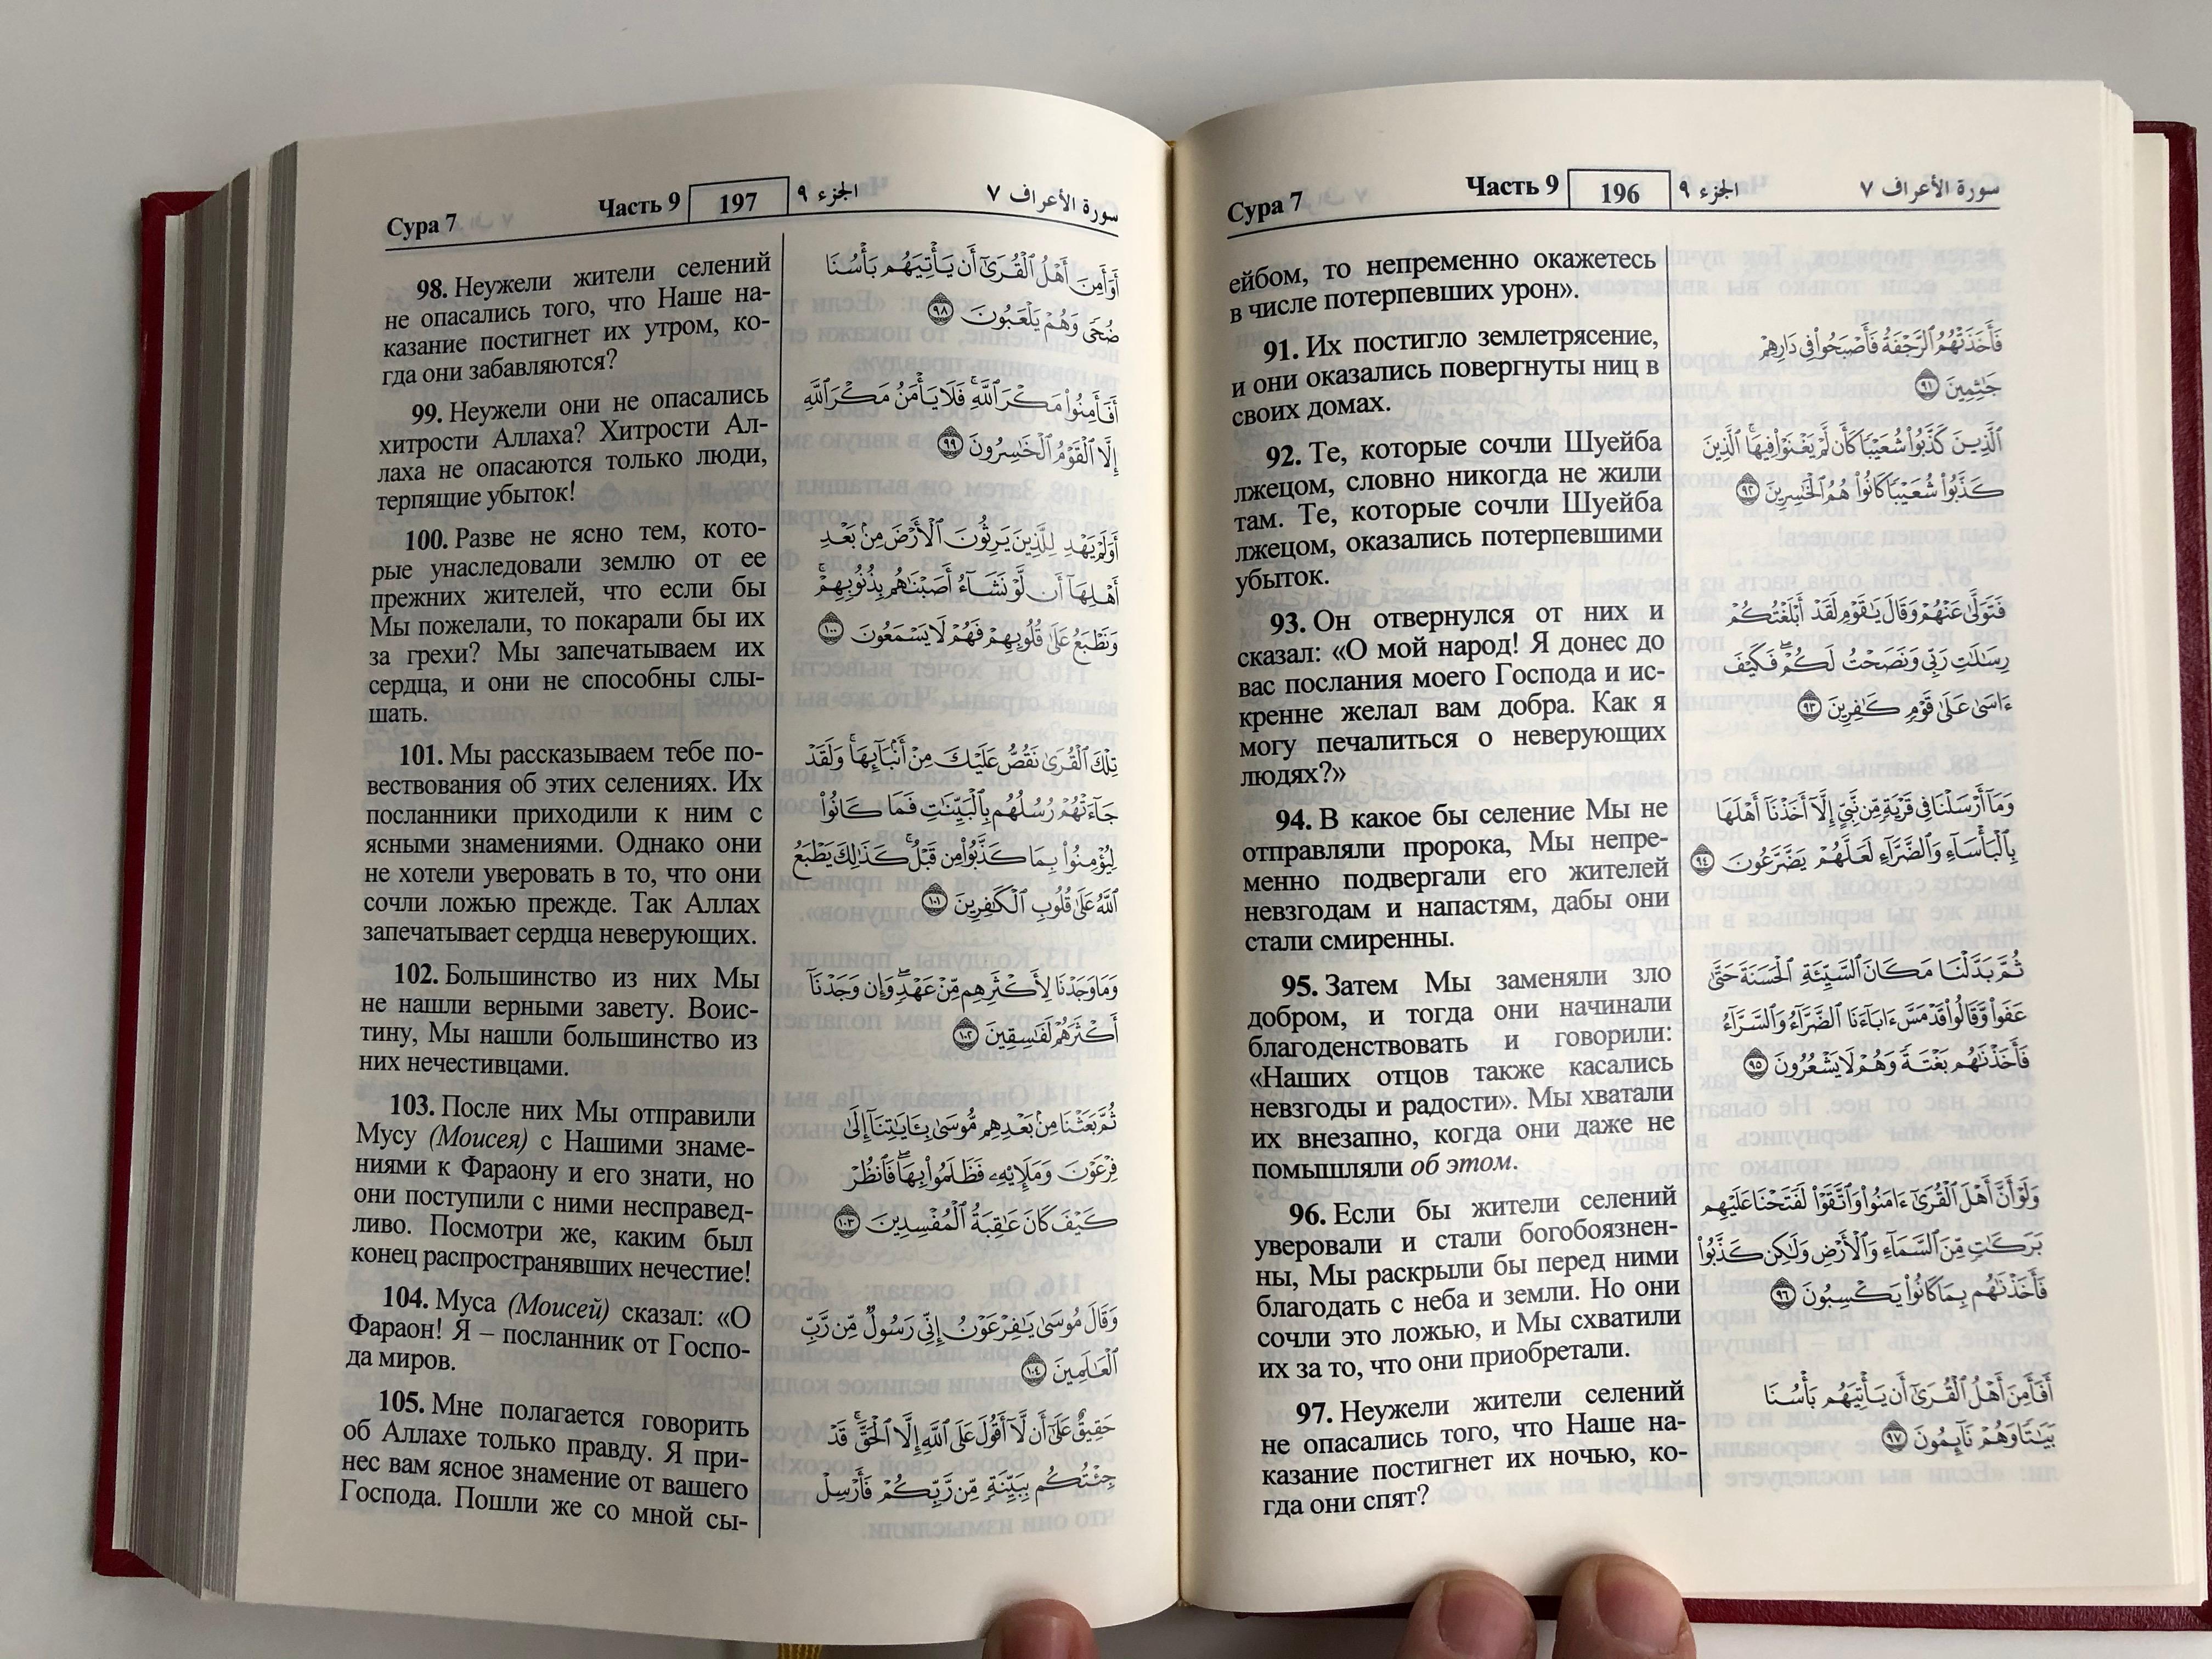 Сура 7 Часть 9 196 الجزء ٩ سورة الأعراف ٧
ейбом, то непременно окажетесь
в числе потерпевших урон».
91. Их постигло землетрясение,
и они оказались повергнуты ниц в
своих домах.
92. Те, которые сочли Шуейба
лжецом, словно никогда не жили
там. Те, которые сочли Шуейба
лжецом, оказались потерпевшими
убыток.
93. Он отвернулся от них и
сказал: «О мой народ! Я донес до
вас послания моего Господа и ис-
кренне желал вам добра. Как я
могу печалиться о неверующих
людях?»
94. В какое бы селение Мы не
отправляли пророка, Мы непре-
менно подвергали его жителей
невзгодам и напастям, дабы они
стали смиренны.
95. Затем Мы заменяли зло
добром, и тогда они начинали
благоденствовать и говорили:
«Наших отцов также касались
невзгоды и радости». Мы хватали
их внезапно, когда они даже не
помышляли об этом.
96. Если бы жители селений
уверовали и стали богобоязнен-
ны, Мы раскрыли бы перед ними
благодать с неба и земли. Но они
сочли это ложью, и Мы схватили
их за то, что они приобретали.
97. Неужели жители селений
не опасались того, что Наше на-
казание постигнет их ночью, ко-
гда они спят?
فَأَخَذَتْهُمُ ٱلرَّجْفَةُ فَأَصْبَحُوا۟ فِى دَارِهِمْ
جَـٰثِمِينَ ٩١
ٱلَّذِينَ كَذَّبُوا۟ شُعَيْبًا كَأَن لَّمْ يَغْنَوْا۟ فِيهَا ۚ ٱلَّذِينَ
كَذَّبُوا۟ شُعَيْبًا كَانُوا۟ هُمُ ٱلْخَـٰسِرِينَ ٩٢
فَتَوَلَّىٰ عَنْهُمْ وَقَالَ يَـٰقَوْمِ لَقَدْ أَبْلَغْتُكُمْ
رِسَـٰلَـٰتِ رَبِّى وَنَصَحْتُ لَكُمْ ۖ فَكَيْفَ
ءَاسَىٰ عَلَىٰ قَوْمٍ كَـٰفِرِينَ ٩٣
وَمَآ أَرْسَلْنَا فِى قَرْيَةٍ مِّن نَّبِىٍّ إِلَّآ أَخَذْنَآ أَهْلَهَا
بِٱلْبَأْسَآءِ وَٱلضَّرَّآءِ لَعَلَّهُمْ يَضَّرَّعُونَ ٩٤
ثُمَّ بَدَّلْنَا مَكَانَ ٱلسَّيِّئَةِ ٱلْحَسَنَةَ حَتَّىٰ
عَفَوا۟ وَّقَالُوا۟ قَدْ مَسَّ ءَابَآءَنَا ٱلضَّرَّآءُ وَٱلسَّرَّآءُ
فَأَخَذْنَـٰهُم بَغْتَةً وَهُمْ لَا يَشْعُرُونَ ٩٥
وَلَوْ أَنَّ أَهْلَ ٱلْقُرَىٰٓ ءَامَنُوا۟ وَٱتَّقَوْا۟ لَفَتَحْنَا عَلَيْهِم
بَرَكَـٰتٍ مِّنَ ٱلسَّمَآءِ وَٱلْأَرْضِ وَلَـٰكِن كَذَّبُوا۟
فَأَخَذْنَـٰهُم بِمَا كَانُوا۟ يَكْسِبُونَ ٩٦
أَفَأَمِنَ أَهْلُ ٱلْقُرَىٰٓ أَن يَأْتِيَهُم بَأْسُنَا
بَيَـٰتًا وَهُمْ نَآئِمُونَ ٩٧
Сура 7 Часть 9 197 الجزء ٩ سورة الأعراف ٧
98. Неужели жители селений
не опасались того, что Наше на-
казание постигнет их утром, ко-
гда они забавляются?
99. Неужели они не опасались
хитрости Аллаха? Хитрости Ал-
лаха не опасаются только люди,
терпящие убыток!
100. Разве не ясно тем, кото-
рые унаследовали землю от ее
прежних жителей, что если бы
Мы пожелали, то покарали бы их
за грехи? Мы запечатываем их
сердца, и они не способны слы-
шать.
101. Мы рассказываем тебе по-
вествования об этих селениях. Их
посланники приходили к ним с
ясными знамениями. Однако они
не хотели уверовать в то, что они
сочли ложью прежде. Так Аллах
запечатывает сердца неверующих.
102. Большинство из них Мы
не нашли верными завету. Воис-
тину, Мы нашли большинство из
них нечестивцами.
103. После них Мы отправили
Мусу (Моисея) с Нашими знаме-
ниями к Фараону и его знати, но
они поступили с ними несправед-
ливо. Посмотри же, каким был
конец распространявших нечестие!
104. Муса (Моисей) сказал: «О
Фараон! Я – посланник от Госпо-
да миров.
105. Мне полагается говорить
об Аллахе только правду. Я при-
нес вам ясное знамение от вашего
Господа. Пошли же со мной сы-
أَوَأَمِنَ أَهْلُ ٱلْقُرَىٰٓ أَن يَأْتِيَهُم بَأْسُنَا
ضُحًى وَهُمْ يَلْعَبُونَ ٩٨
أَفَأَمِنُوا۟ مَكْرَ ٱللَّهِ ۚ فَلَا يَأْمَنُ مَكْرَ ٱللَّهِ
إِلَّا ٱلْقَوْمُ ٱلْخَـٰسِرُونَ ٩٩
أَوَلَمْ يَهْدِ لِلَّذِينَ يَرِثُونَ ٱلْأَرْضَ مِنۢ بَعْدِ
أَهْلِهَآ أَن لَّوْ نَشَآءُ أَصَبْنَـٰهُم بِذُنُوبِهِمْ ۚ
وَنَطْبَعُ عَلَىٰ قُلُوبِهِمْ فَهُمْ لَا يَسْمَعُونَ ١٠٠
تِلْكَ ٱلْقُرَىٰ نَقُصُّ عَلَيْكَ مِنْ أَنۢبَآئِهَا ۚ وَلَقَدْ
جَآءَتْهُمْ رُسُلُهُم بِٱلْبَيِّنَـٰتِ فَمَا كَانُوا۟
لِيُؤْمِنُوا۟ بِمَا كَذَّبُوا۟ مِن قَبْلُ ۚ كَذَٰلِكَ يَطْبَعُ
ٱللَّهُ عَلَىٰ قُلُوبِ ٱلْكَـٰفِرِينَ ١٠١
وَمَا وَجَدْنَا لِأَكْثَرِهِم مِّنْ عَهْدٍ ۖ وَإِن وَجَدْنَآ
أَكْثَرَهُمْ لَفَـٰسِقِينَ ١٠٢
ثُمَّ بَعَثْنَا مِنۢ بَعْدِهِم مُّوسَىٰ بِـَٔايَـٰتِنَآ إِلَىٰ
فِرْعَوْنَ وَمَلَإِيْهِۦ فَظَلَمُوا۟ بِهَا ۖ فَٱنظُرْ
كَيْفَ كَانَ عَـٰقِبَةُ ٱلْمُفْسِدِينَ ١٠٣
وَقَالَ مُوسَىٰ يَـٰفِرْعَوْنُ إِنِّى رَسُولٌ مِّن رَّبِّ
ٱلْعَـٰلَمِينَ ١٠٤
حَقِيقٌ عَلَىٰٓ أَن لَّآ أَقُولَ عَلَى ٱللَّهِ إِلَّا ٱلْحَقَّ ۚ قَدْ
جِئْتُكُم بِبَيِّنَةٍ مِّن رَّبِّكُمْ فَأَرْسِلْ